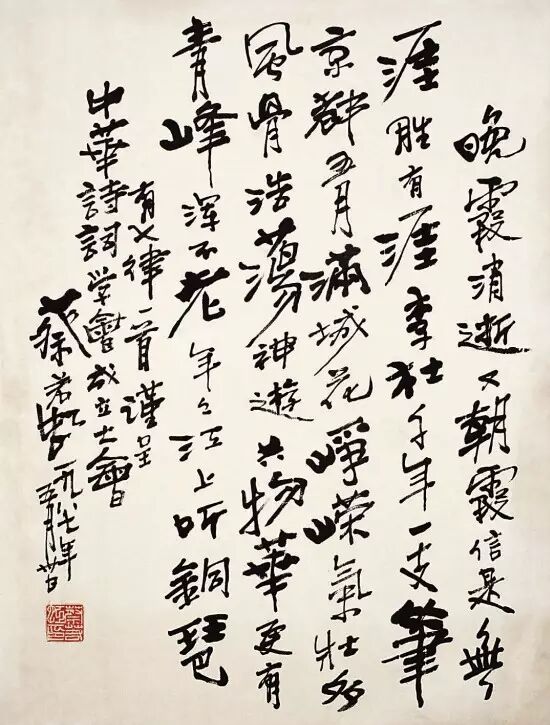 晚霞消逝又朝霞信是無
涯胜有涯李杜千年一支筆
京都五月滿城花崢嶸氣壯多
風骨浩蕩神遊共物華更有
青峰渾不老年々江上听銅琶
有七律一首謹呈
中華詩詞學會成立大會
蔡若虹一九八七年
五月